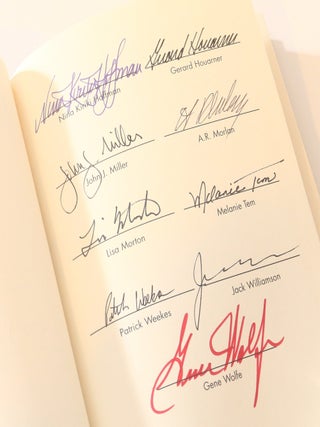 Nina Kiriki Hoffman Gerard Houarner
Nina Kiriki Hoffman Gerard Houarner
John J. Miller
John J. Miller A.R. Morlan
Lisa Morton Melanie Tem
Lisa Morton Melanie Tem
Patrick Weekes
Patrick Weekes Jack Williamson
Gene Wolfe
Gene Wolfe